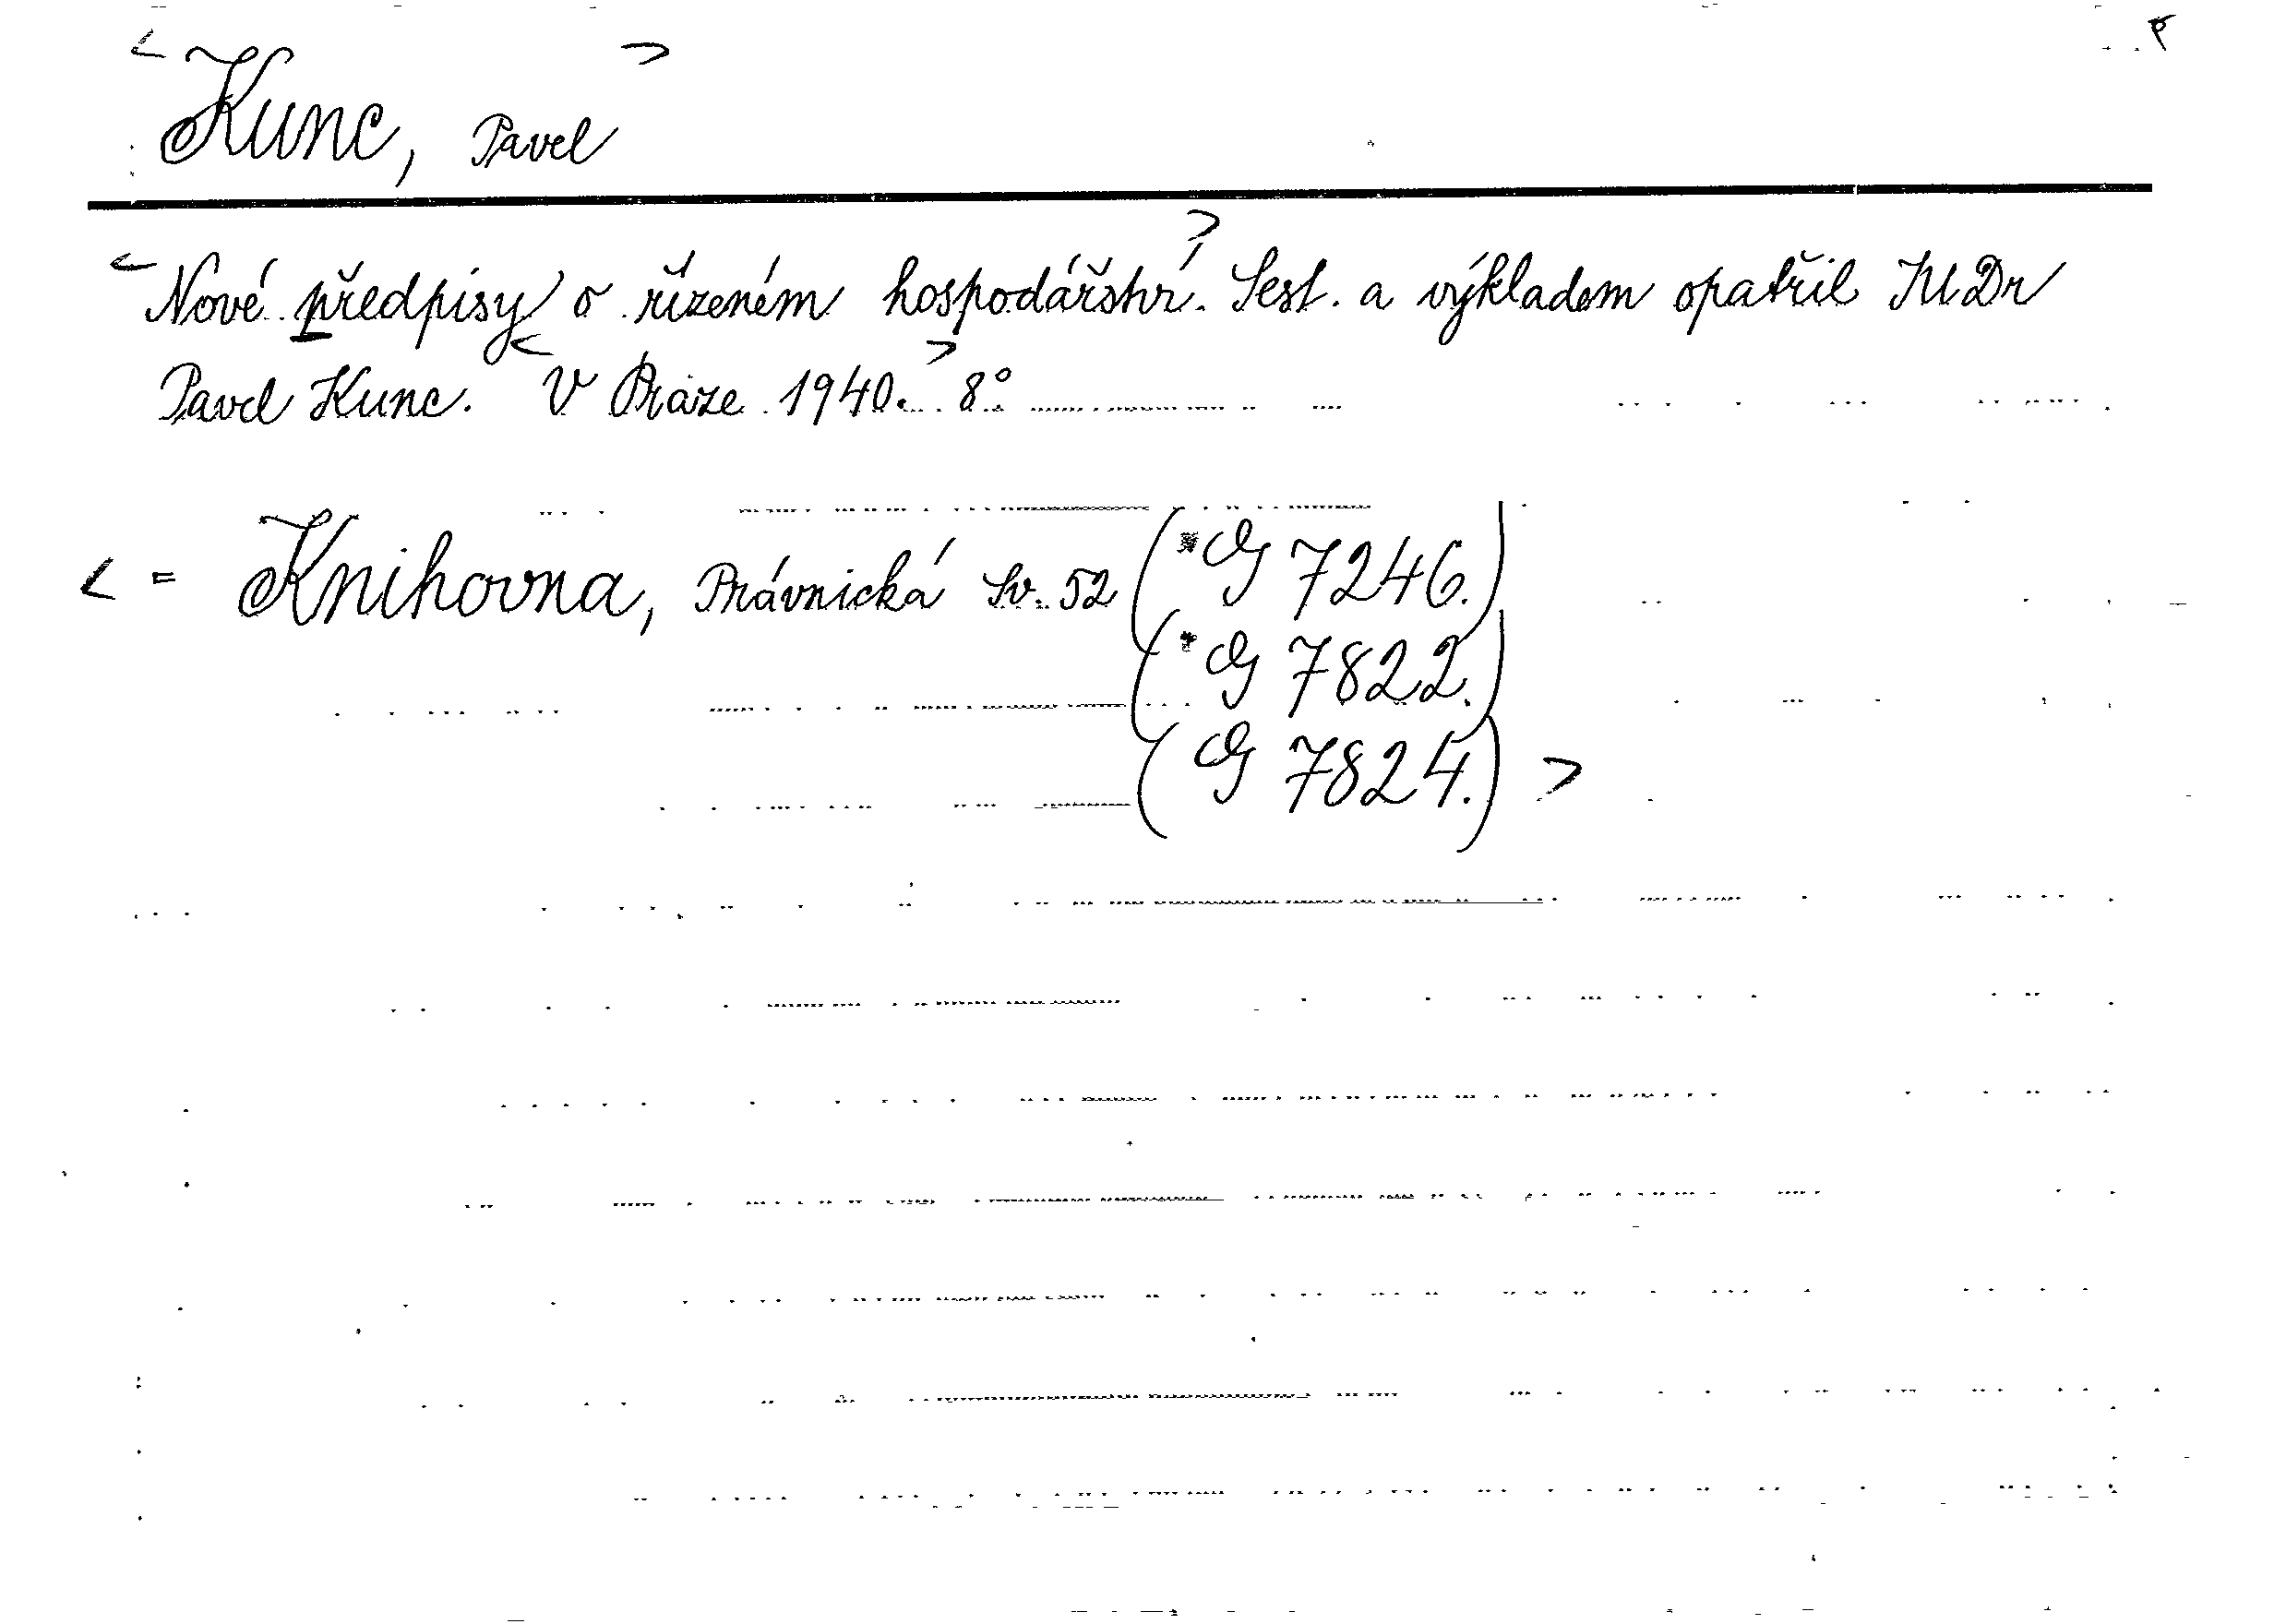 < Kunc, Pavel >
< Nové předpisy o řízeném hospodářství. > Sest. a výkladem opatřil JUDr
Pavel Kunc. < V Praze 1940. > 8°
< = Knihovna, Právnická Sv. 52 (* G 7246.)
(* G 7822.)
( G 7824.) >